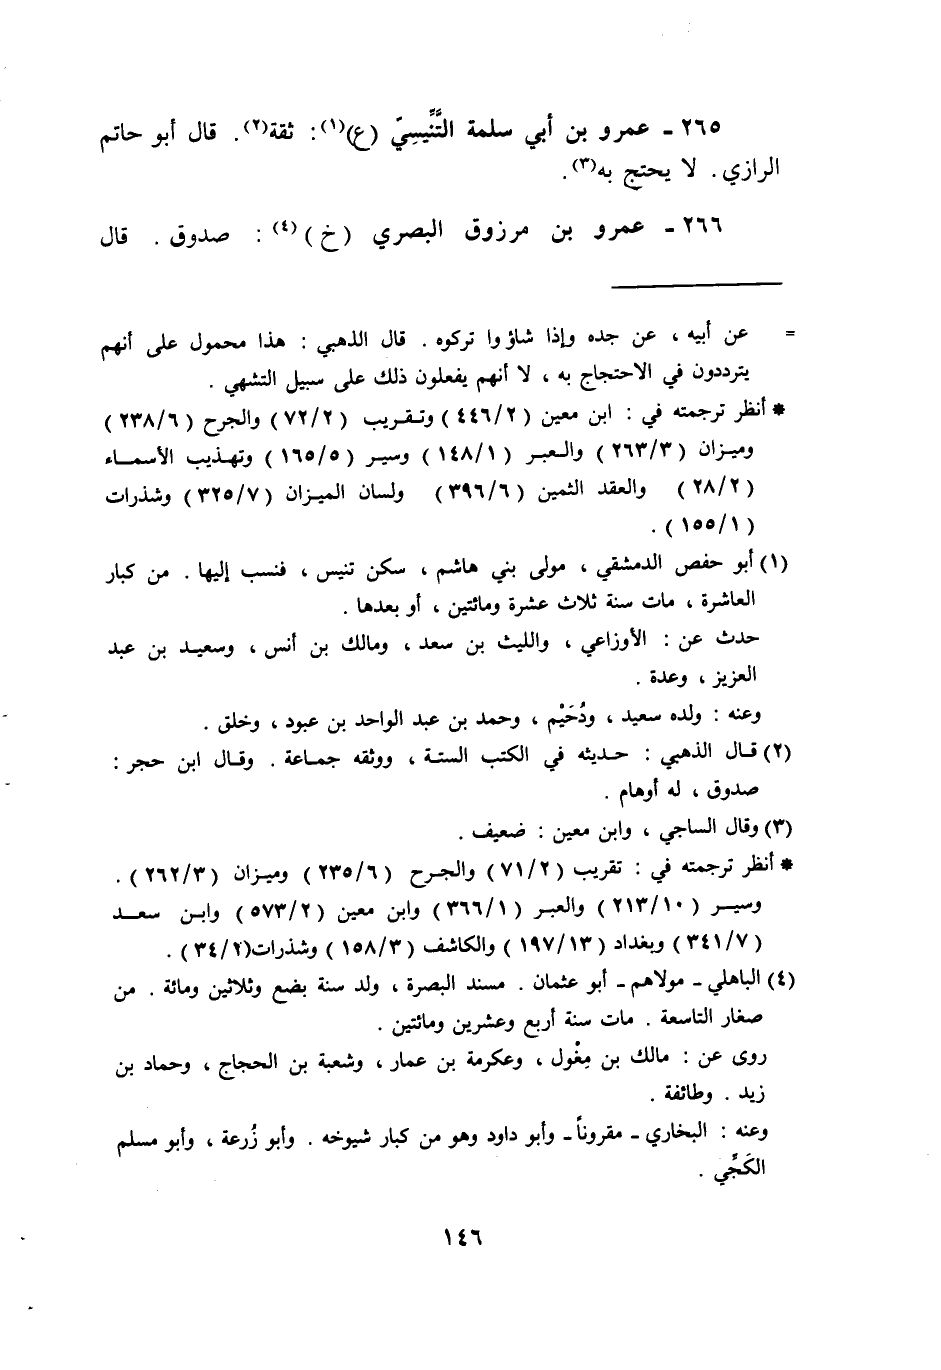 ٢٦٥ ـ عمرو بن أبي سلمة التِّنِّيسِيّ (ع)(١): ثقة(٢). قال أبو حاتم
الرازي. لا يحتج به(٣).
٢٦٦ ـ عمرو بن مرزوق البصري (خ)(٤) : صدوق . قال
= عن أبيه ، عن جده وإذا شاؤوا تركوه . قال الذهبي : هذا محمول على أنهم
يترددون في الاحتجاج به ، لا أنهم يفعلون ذلك على سبيل التشهي .
* أنظر ترجمته في : ابن معين (٤٤٦/٢) وتقريب (٧٢/٢) والجرح (٢٣٨/٦)
وميزان (٢٦٣/٣) والعبر (١٤٨/١) وسير (١٦٥/٥) وتهذيب الأسماء
(٢٨/٢) والعقد الثمين (٣٩٦/٦) ولسان الميزان (٣٢٥/٧) وشذرات
(١٥٥/١) .
(١) أبو حفص الدمشقي ، مولى بني هاشم ، سكن تنيس ، فنسب إليها . من كبار
العاشرة ، مات سنة ثلاث عشرة ومائتين ، أو بعدها .
حدث عن : الأوزاعي ، والليث بن سعد ، ومالك بن أنس ، وسعيد بن عبد
العزيز ، وعدة .
وعنه : ولده سعيد ، ودُحَيْم ، وحمد بن عبد الواحد بن عبود ، وخلق .
(٢) قال الذهبي : حديثه في الكتب الستة ، ووثقه جماعة . وقال ابن حجر :
صدوق ، له أوهام .
(٣) وقال الساجي ، وابن معين : ضعيف .
* أنظر ترجمته في : تقريب (٧١/٢) والجرح (٢٣٥/٦) وميزان (٢٦٢/٣) .
وسير (٢١٣/١٠) والعبر (٣٦٦/١) وابن معين (٥٧٣/٢) وابن سعد
(٣٤١/٧) وبغداد (١٩٧/١٣) والكاشف (١٥٨/٣) وشذرات(٣٤/٢) .
(٤) الباهلي ـ مولاهم ـ أبو عثمان . مسند البصرة ، ولد سنة بضع وثلاثين ومائة . من
صغار التاسعة . مات سنة أربع وعشرين ومائتين .
روى عن : مالك بن مِغْول ، وعكرمة بن عمار ، وشعبة بن الحجاج ، وحماد بن
زيد . وطائفة .
وعنه : البخاري ـ مقروناً ـ وأبو داود وهو من كبار شيوخه . وأبو زُرعة ، وأبو مسلم
الكَجِّي .
١٤٦